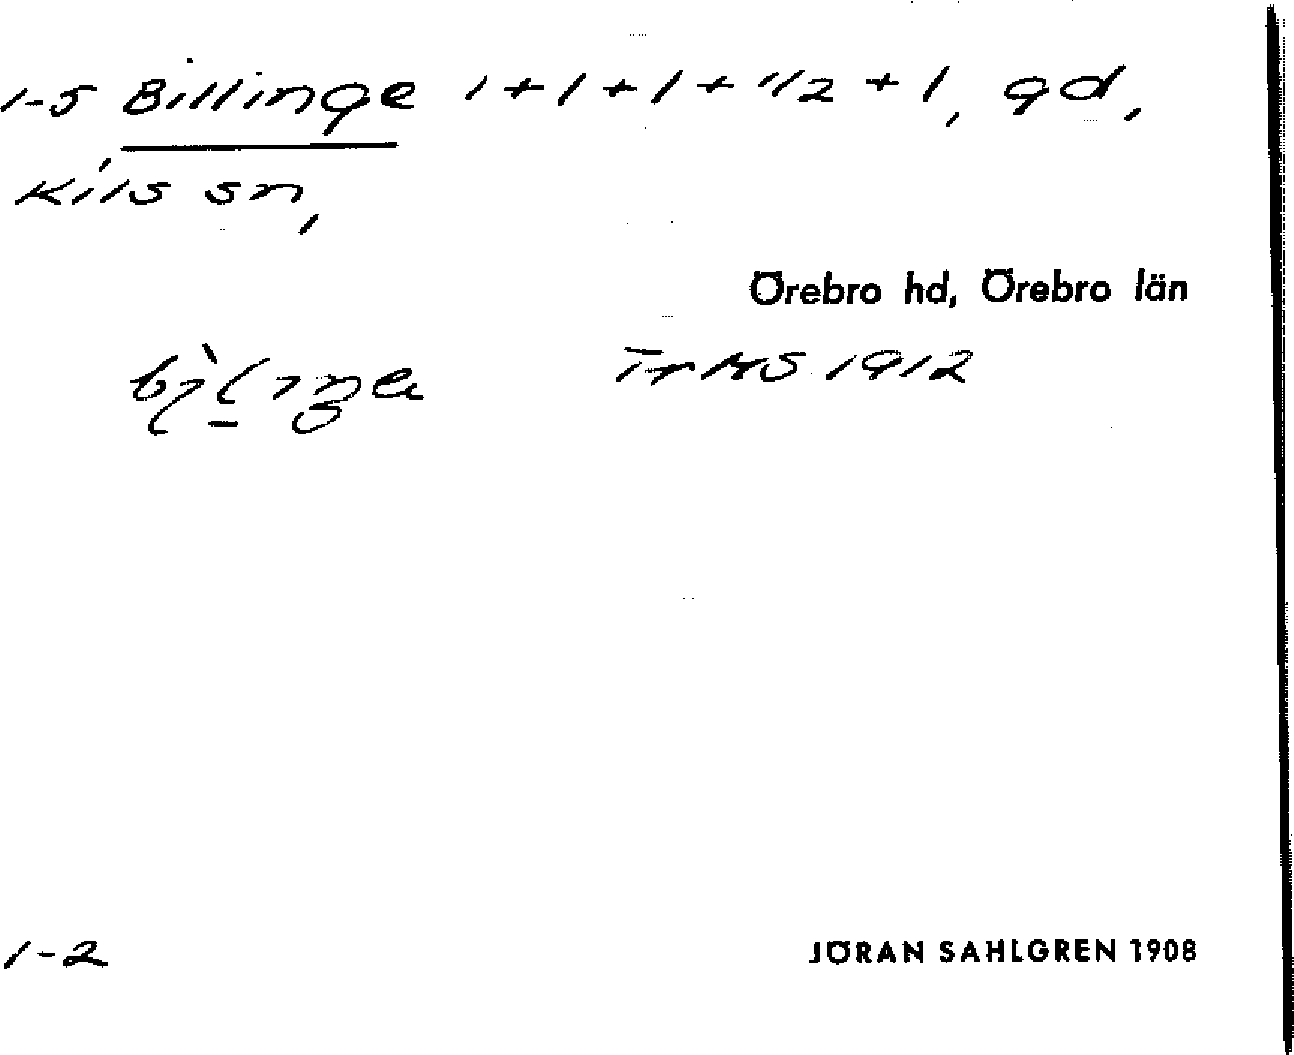 1-5 Billinge 1+1+1+1/2+1, gd,
Kils sn,
Örebro hd, Örebro län
1912
1-2
JÖRAN SAHLGREN 1908